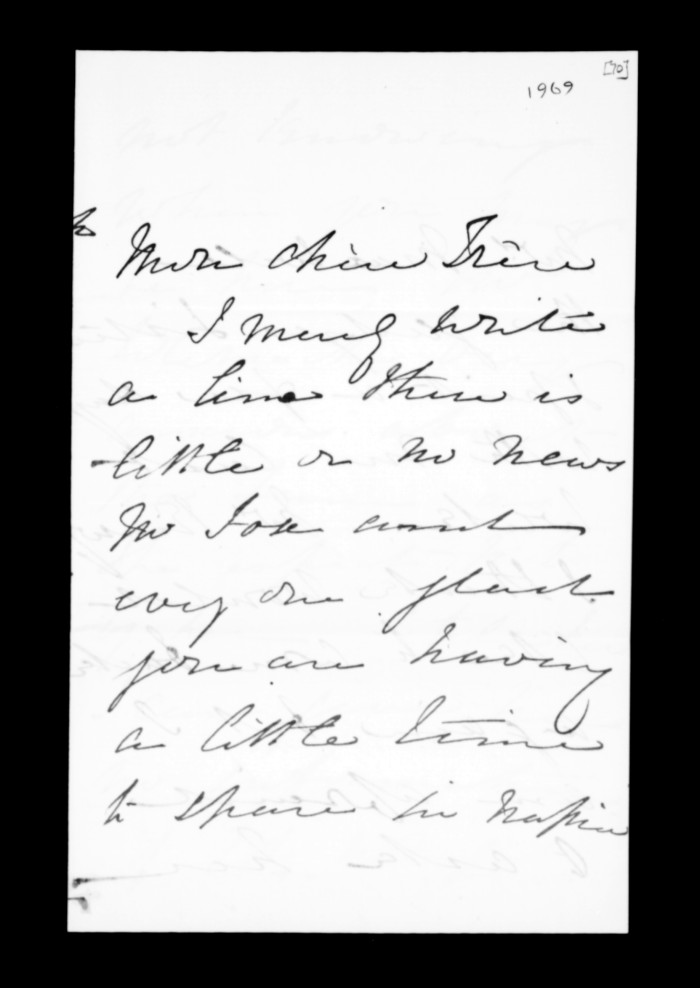 [70]
1969
Mon chère Frère
I merely write
a line there is
little or no news
Mr Fox and
every one glad
you are having
a little time
to spare in Napier